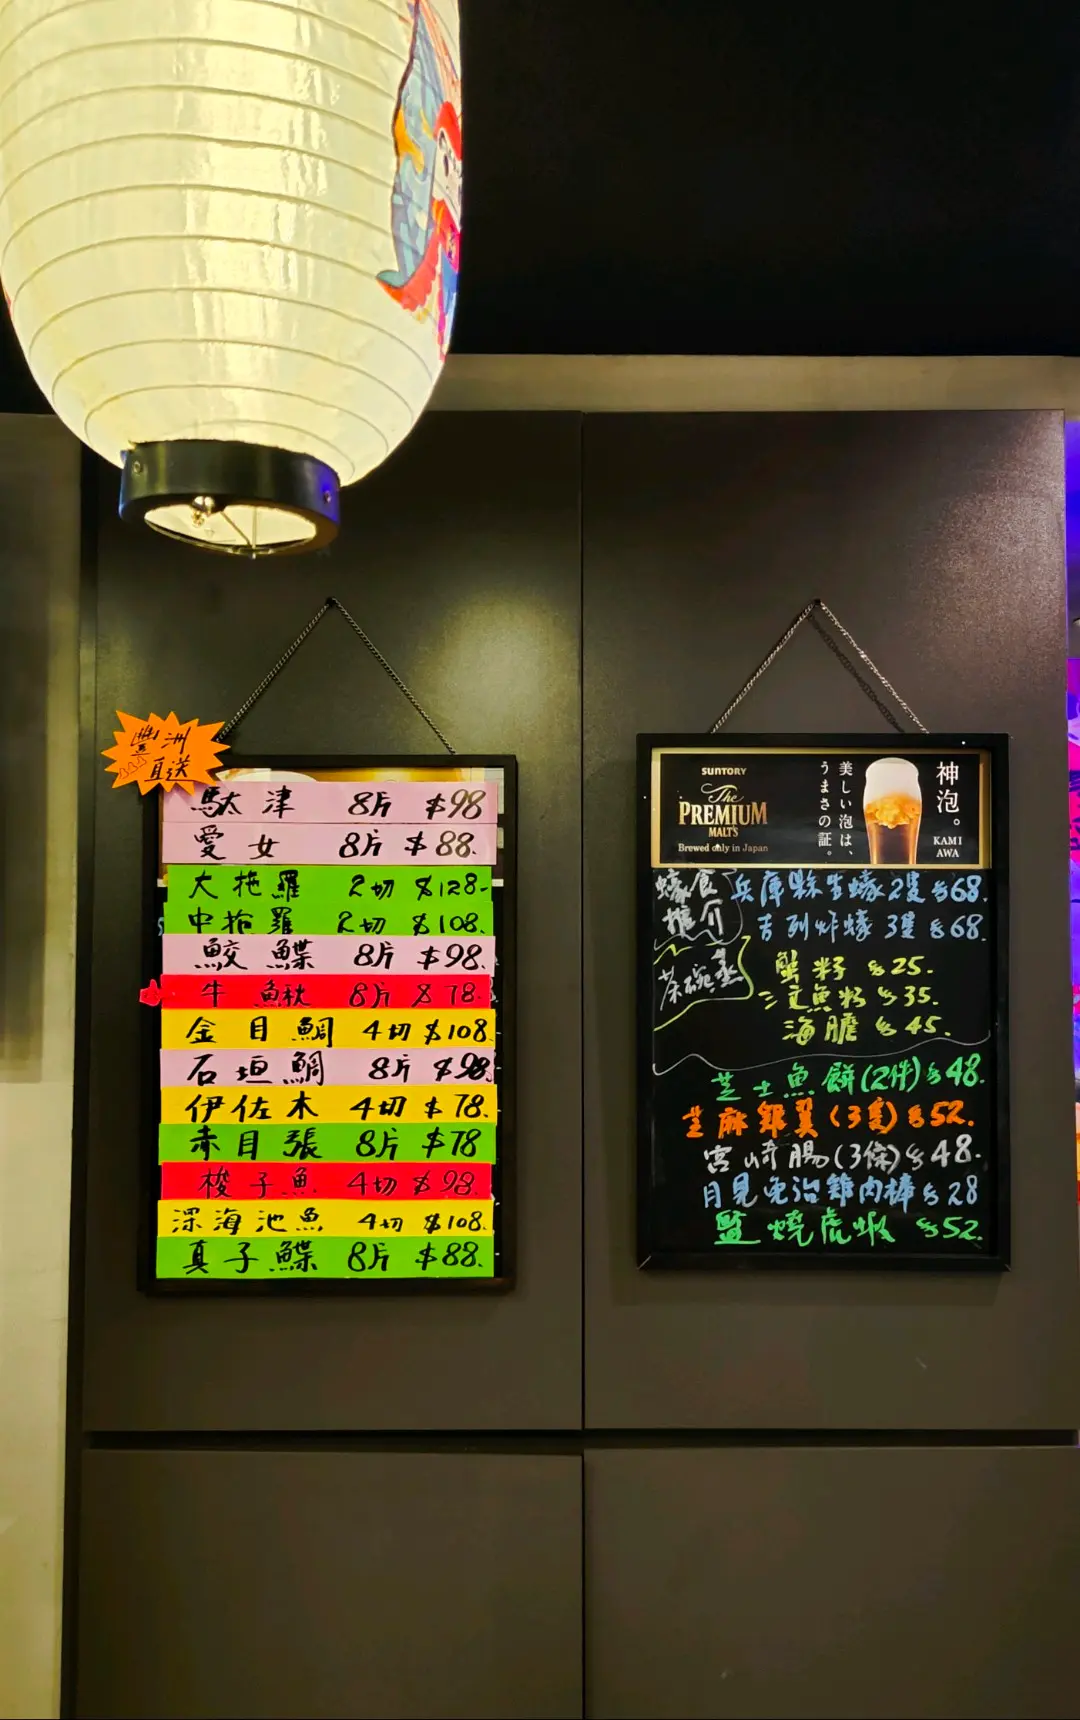 豐洲
直送
馱津 8片 $98
愛女 8片 $88.
大拖羅 2切 $128-
中拖羅 2切 $108.
鮫鰈 8片 $98.
牛鰍 8片 $78.
金目鯛 4切 $108.
石垣鯛 8片 $98.
伊佐木 4切 $78.
赤目張 8片 $78
梭子魚 4切 $98.
深海池魚 4切 $108.
真子鰈 8片 $88.
SUNTORY
The
PREMIUM
MALT'S
Brewed only in Japan
美しい泡は、
うまさの証。
神泡。
KAMI
AWA
蠔食
推介
兵庫縣生蠔2隻 $68.
吉列炸蠔 3隻 $68.
茶碗蒸
蟹籽 $25.
三文魚籽 $35.
海膽 $45.
芝士魚餅(2件) $48.
芝麻雞翼(3隻) $52.
宮崎腸(3條) $48.
月見免治雞肉棒 $28
鹽燒虎蝦 $52.